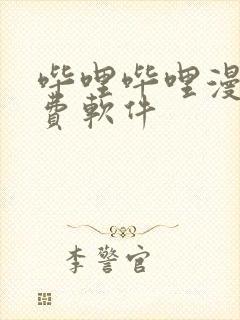 哔哩哔哩漫
費軟件
李警官